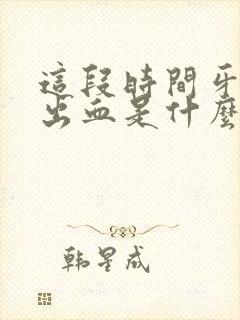 這段時間牙
出血是什麼
韩星成